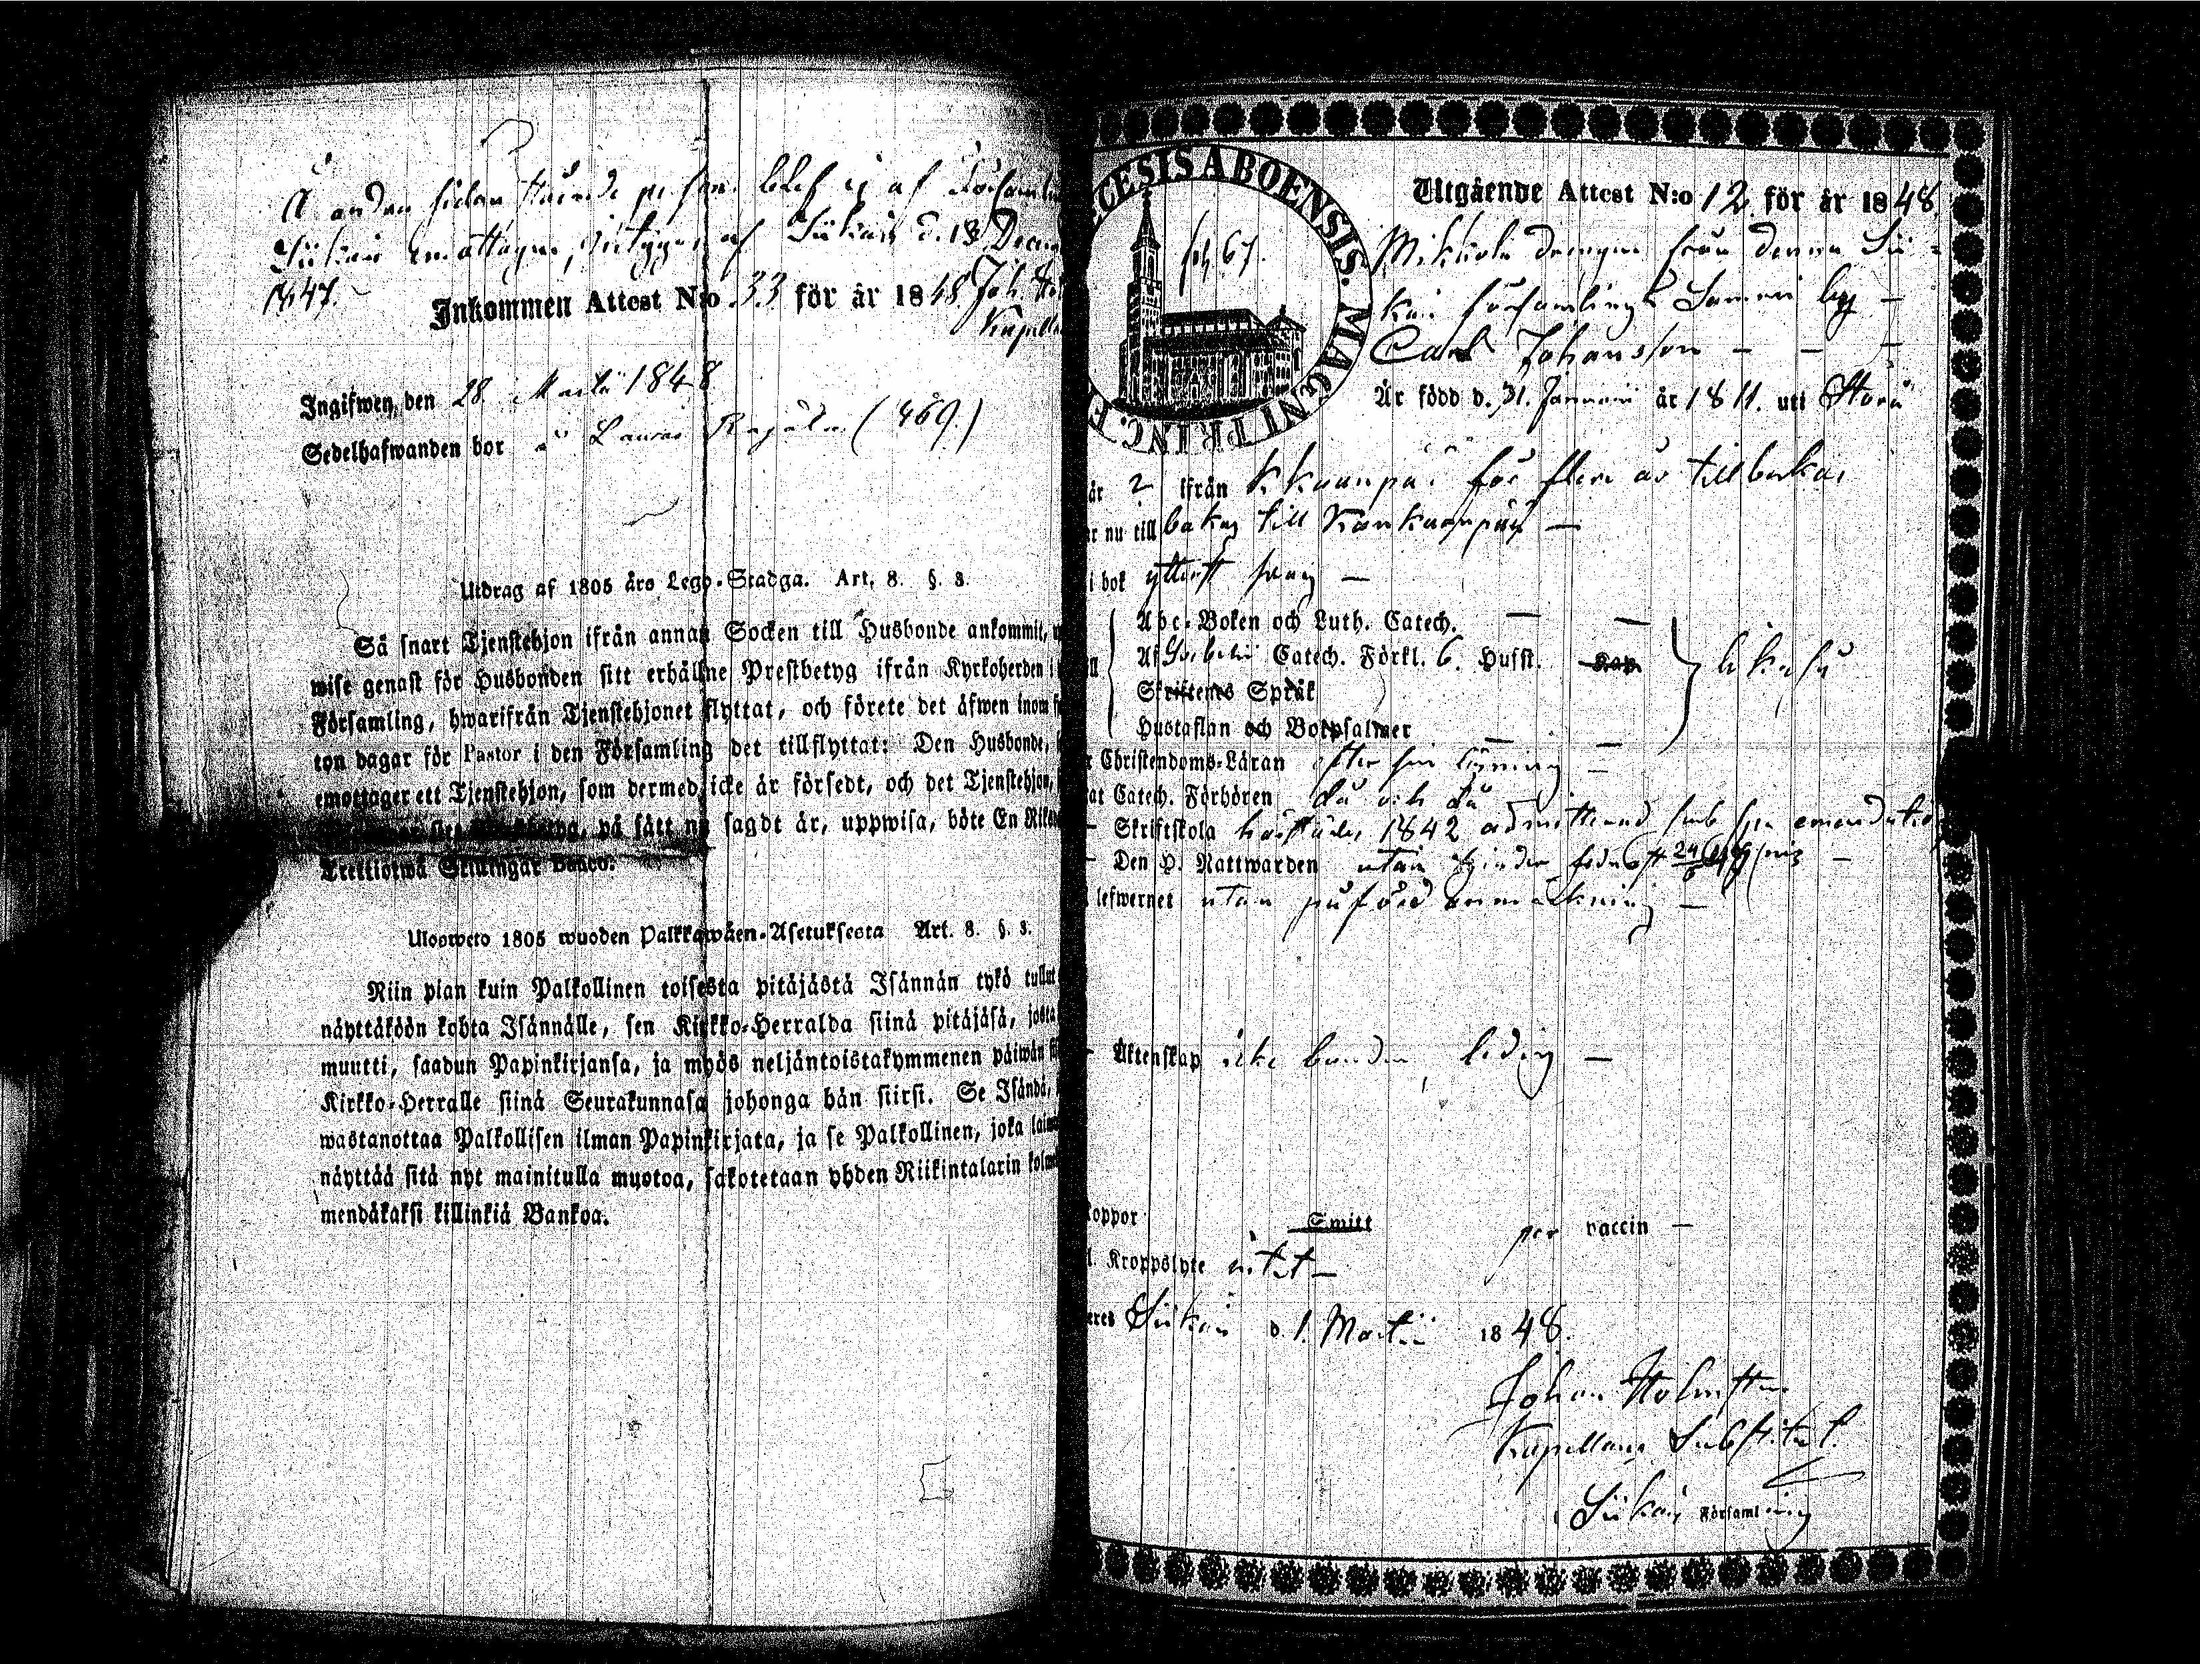 Å andra sidan stående person blef ej af
Siikais emottagen, intygar af Siikais d. 13
1847.
Inkommen Attest N:o 33 för år 1848 Joh.
Ingifwen, den 28 Martii 1848
Sedelhafwanden bor å (469.)
Utdrag af 1805 års Lego-Stadga. Art. 8. §. 3.
Så snart Tjenstehjon ifrån annan Socken till Husbonde ankommit,
wise genast för Husbonden sitt erhållne Prestbetyg ifrån Kyrkoherden i
Församling, hwarifrån Tjenstehjonet flyttat, och förete det äfwen inom
ton dagar för Pastor i den Församling det tillflyttat: Den Husbonde,
emottager ett Tjenstehjon, som dermed icke är försedt, och det Tjenstehjon,
på sätt nu sagdt är, uppwisa, böte En
Trettiotwå Skillingar Banco.
Ulosweto 1805 wuoden Palkkawäen-Asetuksesta Art. 8. §. 3.
Niin pian kuin Palkollinen toisesta pitäjästä Isännän tykö tullut
näyttäköön kohta Isännälle, sen Kirkko-Herralda siinä pitäjäsä, josta
muutti, saadun Papinkirjansa, ja myös neljäntoistakymmenen päiwän
Kirkko-Herralle siinä Seurakunnasa johonga hän siirsi. Se Isändä,
wastanottaa Palkollisen ilman Papinkirjata, ja se Palkollinen, joka
näyttää sitä nyt mainitulla muotoa, sakotetaan yhden Riikintalarin
mendäkaksi killinkiä Bankoa.
CESIS ABOENSIS. MAGNI PRINC. F
fol 67.
Utgående Attest N:o 12 för år 1848
Mikkola drengen från denna Sii-
kais församlings Sammi by
Carl Johansson
Är född d. 31. Januarii år 1811. uti Storå
år 2 ifrån Kankaanpää för flere år tillbaka,
r nu till baka till Kankaanpää
i bok ytterst swag
Abc-Boken och Luth. Catech.
Af Swebelii Catech. Förkl. 6. Husst. Kap. likaså
Skriftenes Språk
Hustaflan och Botpsalmer
r Christendoms-Läran efter sin läsning
at Catech. Förhören då och då
Skriftskola 1842 admitterad sub spe emendationis
Den H. Nattwarden utan hinder, sednast
lefwernet utan påförd anmärkning
Äktenskap icke bunden, ledig
koppor Smitt per vaccin
l. Kroppslyte intet
eres Siikais d. 1. Martii 1848.
Johan Holmsten
Kapellans Substitut.
i Siikais Församling